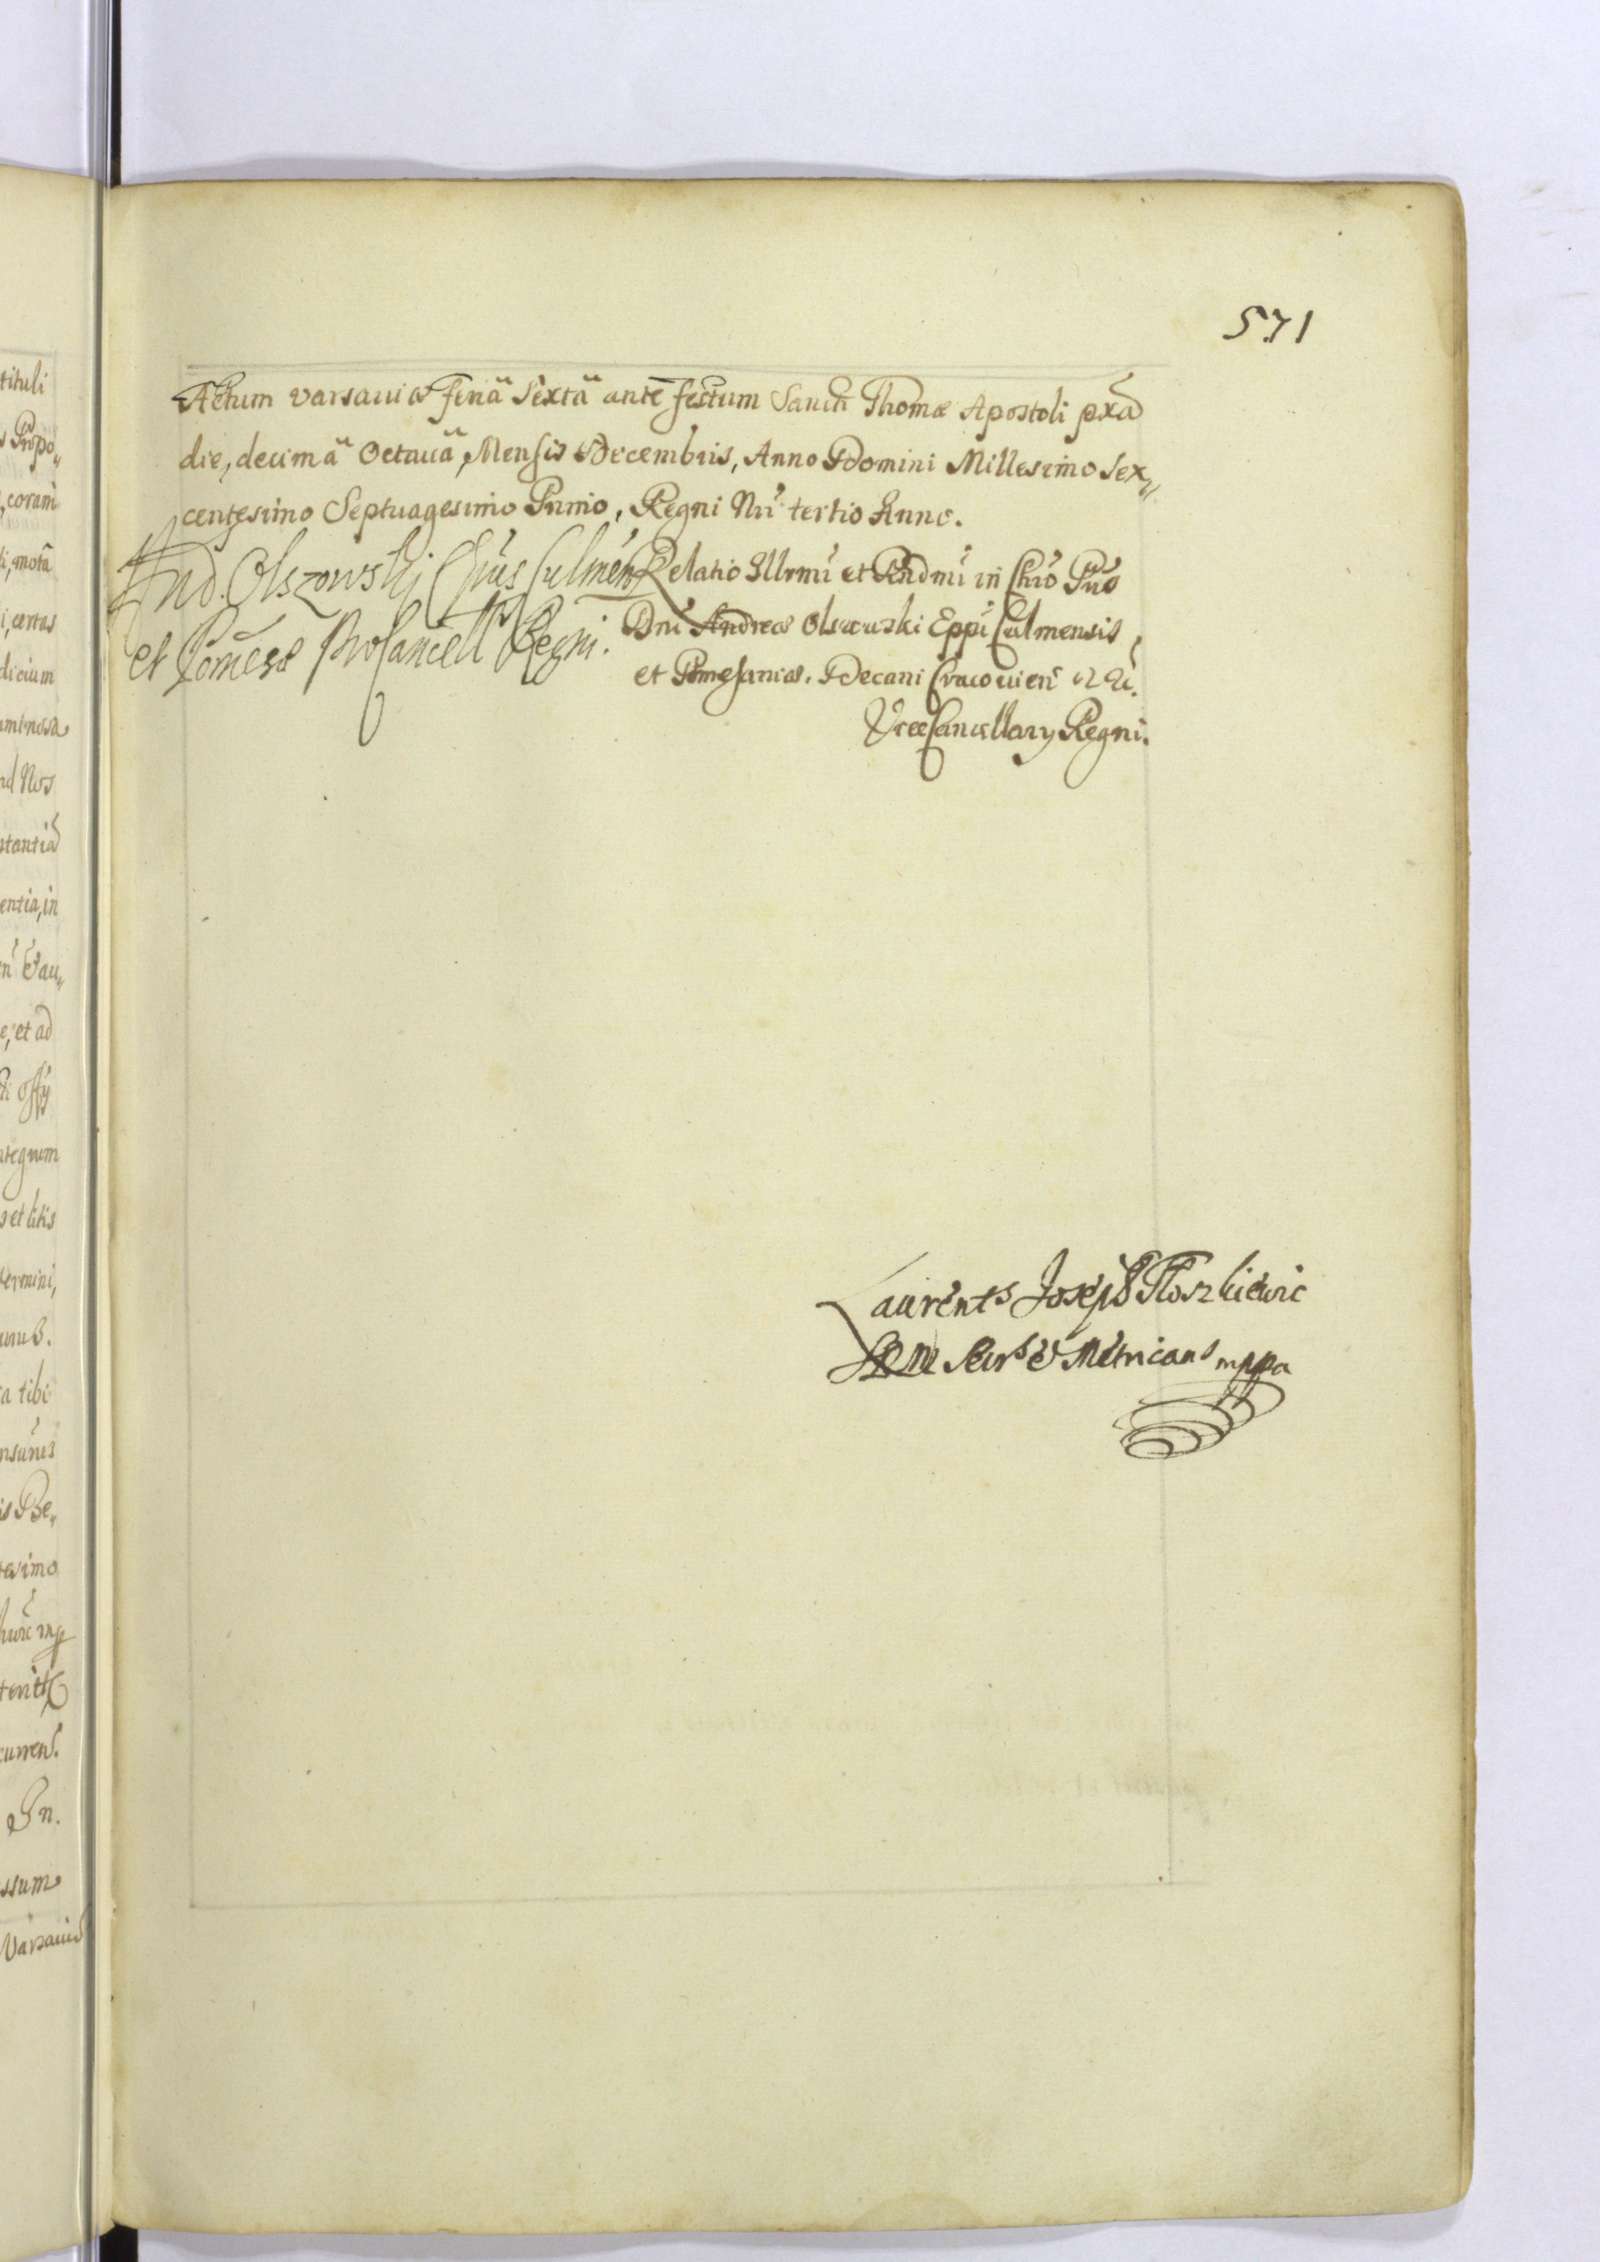 571
Actum Varsauiæ feriâ Sextâ ante festum Sancti Thomæ Apostoli pxâ
die, decimâ Octauâ, Mensis Decembris, Anno Domini Millesimo Sex„
centesimo Septuagesimo Primo, Regni Nri tertio Anno.
And. Olszowski Eppus Culmen
et Pomesæ ProCancell Regni.
Relatio Illrmi et Rndmi in Chro Pris
Dni Andreæ Olszouski Eppi Culmensis
et Pomesaniæ, Decani Cracouien
ViceCancellary Regni.
Laurents Joseph
SRM Secrs & Metricans mppa
tituli
coram
, motâ
, certas
dicium
minosa
ad Nos
entia, in
e, et ad
offy
et litis
termini,
a tibi
esimo
curren.
In.
ssum
Varsauiæ